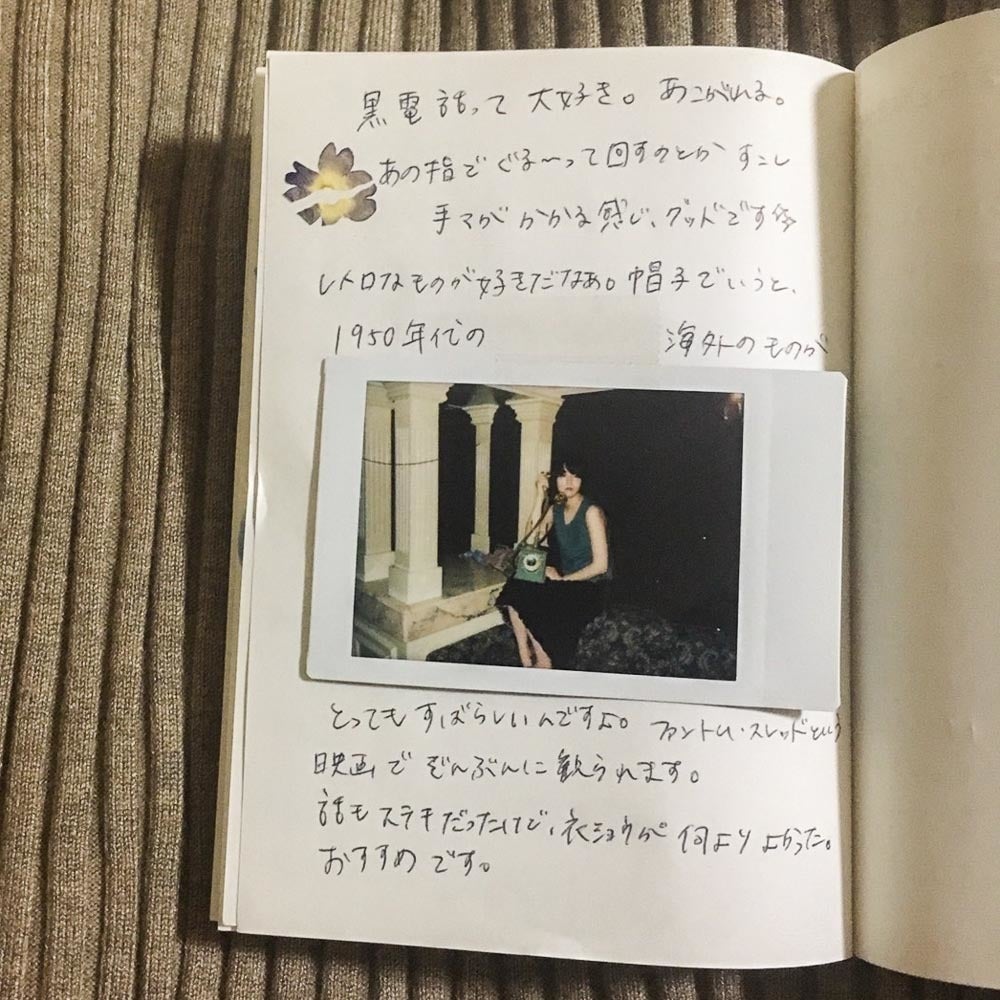 黒電話って 大好き。 あこがれる。
あの指で ぐる〜って 回すのとか すこし
手マがかかる感じ、グッドです
レトロなものが好きだなあ。帽子でいうと、
1950年代の 海外のものが
とっても すばらしいんですよ。 ファントム・スレッドという
映画で ぞんぶんに観られます。
話も ステキだったけど、衣ショウが 何より よかった。
おすすめです。